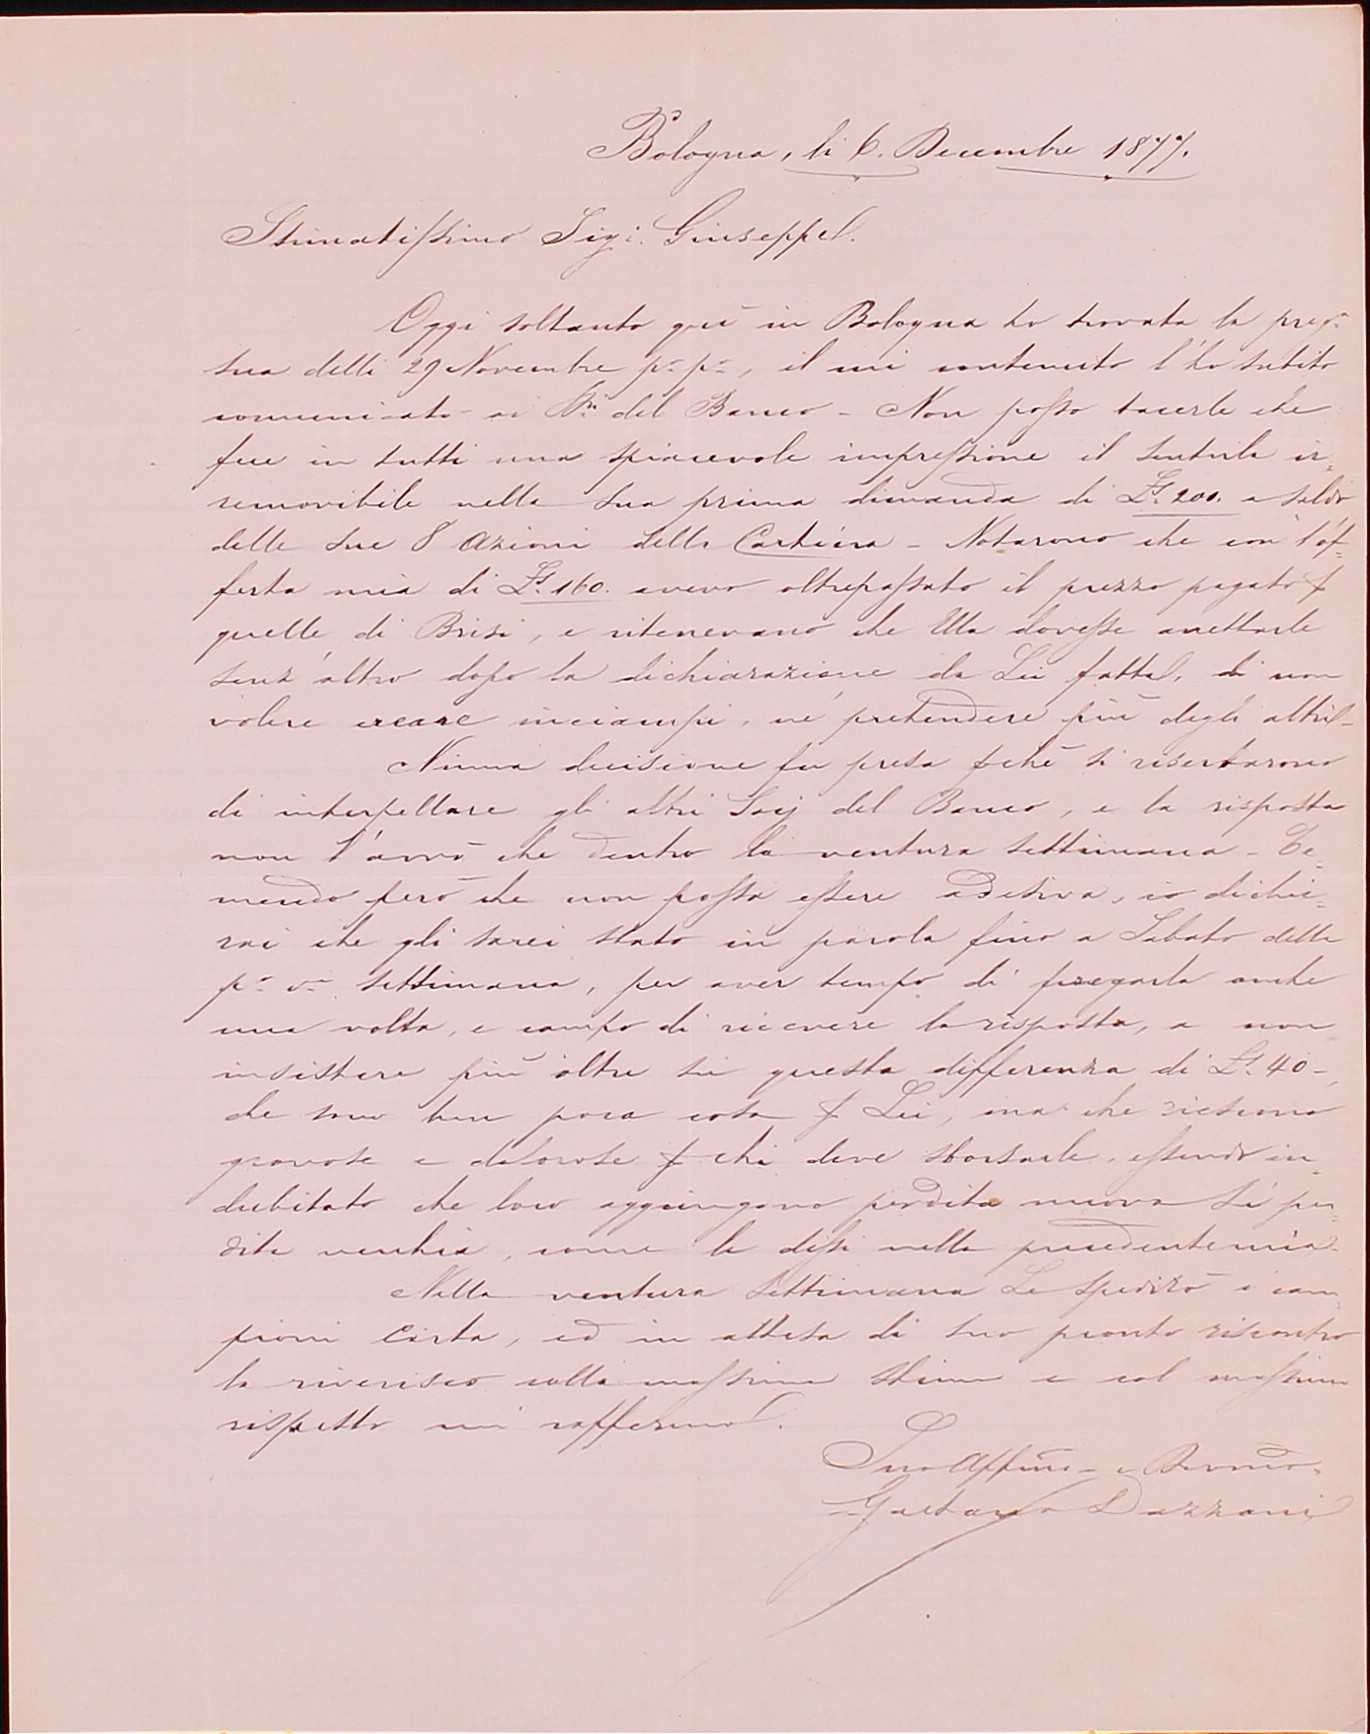 Bologna, li 6. Decembre 1877.
Stimatissimo Sigr. Giuseppe.
Oggi soltanto quì in Bologna ho trovata la preg.a
sua delli 29 Novembre p.o p.o, il cui contenuto l'ho subito
comunicato ai del Banco - Non posso tacerle che
fece in tutti una spiacevole impressione il sentirla ir=
removibile nella sua prima dimanda di L. 200. a saldo
delle sue 8 Azioni della Cartiera - Notarono che con l'of=
ferta mia di L. 160. avevo oltrepassato il prezzo pagato p
quelle di Brisi, e ritenevano che Ella dovesse accettarle
senz'altro dopo la dichiarazione da Lei fatta, di non
volere creare inciampi, nè pretendere più degli altri -
Niuna decisione fu presa pchè si riserbarono
di interpellare gli altri Socj del Banco, e la risposta
non l'avrò che dentro la ventura settimana - Te=
mendo però che non possa essere adesiva, io dichia=
rai che gli sarei stato in parola fino a Sabato della
p.a v.a settimana, per aver tempo di pregarla anche
una volta, e campo di ricevere la risposta, a non
insistere più oltre su questa differenza di L. 40 -
che sono ben poca cosa p Lei, ma che riescono
gravose e dolorose p chi deve sborsarle, essendo in=
dubitato che loro aggiungono perdita nuova su per=
dita vecchia, come le dissi nella precedente mia.
Nella ventura settimana Le spedirò i cam=
pioni Carta, ed in attesa di suo pronto riscontro
la riverisco colla massima stima e col massimo
rispetto mi raffermo.
Suo Affmo. e Devmo.
Gaetano Dazzani